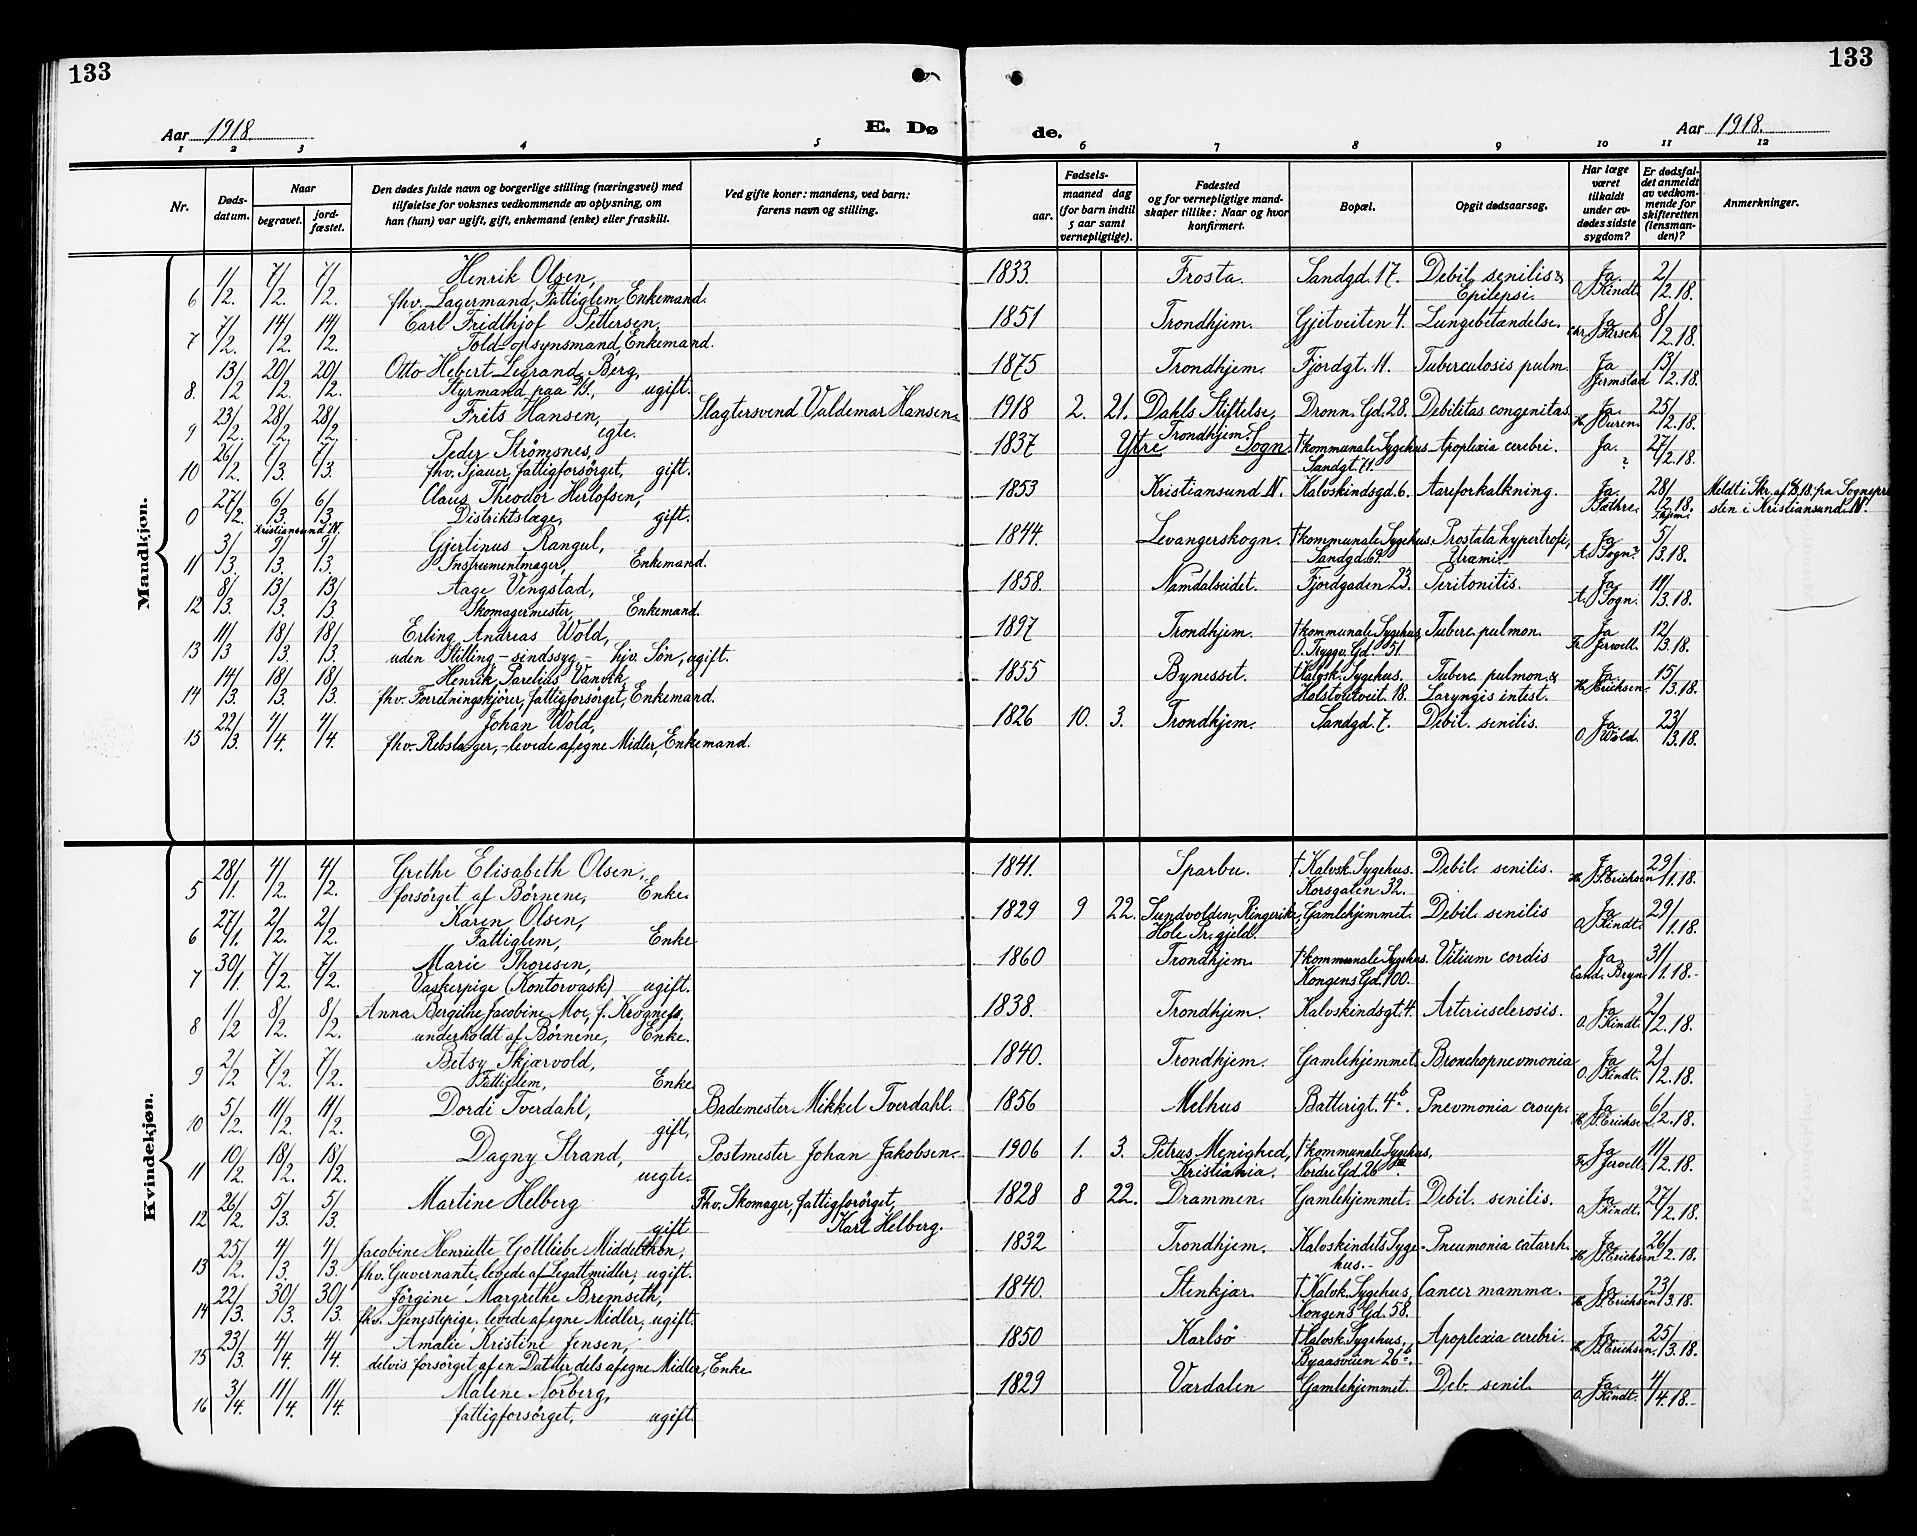 133
133
Aar 1918.
E. Dø
de.
Aar 1918.
1 2 3 4 5 6 7 8 9 10 11 12
Nr.
Døds-
datum.
Naar
begravet.
jord-
fæstet.
Den dødes fulde navn og borgerlige stilling (næringsvei) med
tilføielse for voksnes vedkommende av oplysning, om
han (hun) var ugift, gift, enkemand (enke) eller fraskilt.
Ved gifte koner: mandens, ved barn:
farens navn og stilling.
Fødsels-
aar.
maaned dag
(for barn indtil
5 aar samt
vernepligtige).
Fødested
og for vernepligtige mand-
skaper tillike: Naar og hvor
konfirmert.
Bopæl.
Opgit dødsaarsag.
Har læge
været
tilkaldt
under av-
dødes sidste
sygdom?
Er dødsfal-
det anmeldt
av vedkom-
mende for
skifteretten
(lensman-
den)?
Anmerkninger.
Mandkjøn.
6 1/2. 7/2. 7/2. Henrik Olsen, 1833. Frosta. Sandgd. 17. Debil. senilis & Ja 2/2.18.
fhv. Lagermand, Fattiglem, Enkemand. Epilepsi. O. Kindt.
7 7/2. 14/2. 14/2. Carl Fridthjof Pettersen, 1851 Trondhjem. Gjetveiten 4. Lungebetændelse. Ja 8/2.18.
Told-opsynsmand, Enkemand. Chr. Hirsch.
8. 13/2 20/2. 20/2. Otto Hebert Legrand Berg, 1875 Trondhjem. Fjordgt. 11. Tuberculosis pulm. Ja 13/2.18.
Styrmand paa D/S., ugift. Jermstad
9 23/2. 28/2. 28/2. Frits Hansen, Slagtersvend Valdemar Hansen. 1918 2. 21. Dahls Stiftelse, Dronn. Gd. 28. Debilitas congenitas. Ja. 25/2.18.
egte. Trondhjem.
10 26/2. 7/3. 7/3. Peder Strömsnes, 1837 Ytre Sogn †kommunale Sygehus Apoplexia cerebri. Ja. 27/2.18.
fhv. Sjauer, fattigforsörget, gift. Sandgt. 71. ?
0 27/2. 6/3. 6/3. Claus Theodor Herlofsen, 1853 Kristiansund N. Kalvskindsgd. 6. Aareforkalkning. Ja. 28/2.18. Meldt i Skr. af fra Sognepre
Kristiansund N. Distriktslæge, gift. Bæthre. sten i Kristiansund N.
11 3/3. 9/3. 9/3. Gjertinus Rangul, 1844. Levangerskogn. †kommunale Sygehus. Prostata hypertrofi, Ja 5/3.18.
Instrumentmager, Enkemand. Sandgd. 69. Urami.
12 8/3. 13/3. 13/3 Aage Vengstad, 1858. Namdalseidet. Fjordgaden 23. Peritonitis. Ja 11/3.18.
Skomagermester, Enkemand. A. Sogn.
13 11/3 18/3. 18/3. Erling Andreas Wold, 1897 Trondhjem. †kommunale Sygehus, Tuberc. pulmon. Ja 12/3.18.
uden Stilling – sindssyg – hjv. Sön, ugift. O. Tryggv. Gd. 51 Fr. Jervell.
14 14/3. 18/3. 18/3. Henrik Parelius Vanvik, 1855 Bynesset. †Kalvsk. Sygehus. Tuberc. pulmon. & Ja. 15/3.18.
fhv. Forretningskjörer, fattigforsörget, Enkemand. Holstveit. 18. Laryngis intest. H. Erichsen.
15 22/3. 4/4. 4/4. Johan Wold, 1826 10. 3. Trondhjem. Sandgd. 7. Debil. senilis. Ja 23/3.18.
fhv. Rebslager, – levede af egne Midler, Enkemand. O. Wold.
Kvindekjøn.
5 28/1. 4/2. 4/2. Grethe Elisabeth Olsen, 1841. Sparbu. † Kalvsk. Sygehus. Debil. senilis. Ja 29/1.18.
forsörget af Börnene, Enke. Korsgaten 32. H. S. Erichsen
6 27/1. 2/2. 2/2. Karen Olsen, 1829 9 22. Sundvolden, Ringerike, Gamlehjemmet. Debil. senilis Ja 29/1.18.
Fattiglem, Enke Hole Pr.gjeld. O. Kindt.
7 30/1. 7/2. 7/2. Marie Thoresen, 1860 Trondhjem. †kommunale Sygehus. Vitium cordis Ja 31/1.18.-
Vaskerpige (Kontorvask) ugift. Kongens Gd. 100. Cand. Bryn
8 1/2 8/2. 8/2. Anna Bergithe Jacobine Moe, f. Krogness, 1838. Trondhjem. Kalvskindsgt. 4. Arteriesclerosis. Ja 2/2.18.
underholdt af Börnene, Enke. O. Kindt.
9 2/2 7/2. 7/2. Betsy Skjærvold, 1840. Trondhjem. Gamlehjemmet Bronchopnevmonia Ja 2/2.18.
Fattiglem, Enke O. Kindt.
10 5/2. 11/2. 11/2. Dordi Tverdahl, Bademester Mikkel Tverdahl. 1856 Melhus Batterigt. 4b. Pnevmonia croup. Ja 6/2.18.
gift, H. S. Erichsen
11 10/2. 18/2. 18/2. Dagny Strand, Postmester Johan Jakobsen. 1906 1. 3. Petrus Menighed, †kommunale Sygehus, Ja 11/2.18.
uegte. Kristiania. Nordre Gd. 26 III. Fr. Jervell.
12 26/2. 5/3. 5/3. Martine Helberg Fhv. Skomager, fattigforsörget, 1828 8 22. Drammen. Gamlehjemmet. Debil. senilis. Ja 27/2.18.
gift Karl Helberg. O. Kindt.
13 25/2. 4/3. 4/3. Jacobine Henriette Gottliebe Middelthon, 1832 Trondhjem. Kalvskindets Syge- Pneumonia catarrh. Ja 26/2.18.
fhv. Guvernante, levede af Legatmidler, ugift. hus.- H. S. Erichsen
14 22/3. 30/3. 30/3. Jörgine Margrethe Bremseth, 1840. Stenkjær. † Kalvsk. Sygehus, Cancer mammæ. Ja 23/3.18.
fhv. Tjenestepige, levede af egne Midler, ugift. Kongens Gd. 58. H. S. Erichsen
15 23/3. 4/4. 4/4. Amalie Kristine Jensen, 1850 Karlsö †Kalvsk. Sygehus, Apoplexia cerebri. Ja. 25/3.18.
delvis forsörget af en Datter dels af egne Midler, Enke Byaasveien 26b. H. S. Erichsen.
16 3/4. 11/4. 11/4. Malene Norberg, 1829 Værdalen Gamlehjemmet. Deb. senil. Ja. 4/4.18.-
fattigforsörget, ugift. O. Kindt.